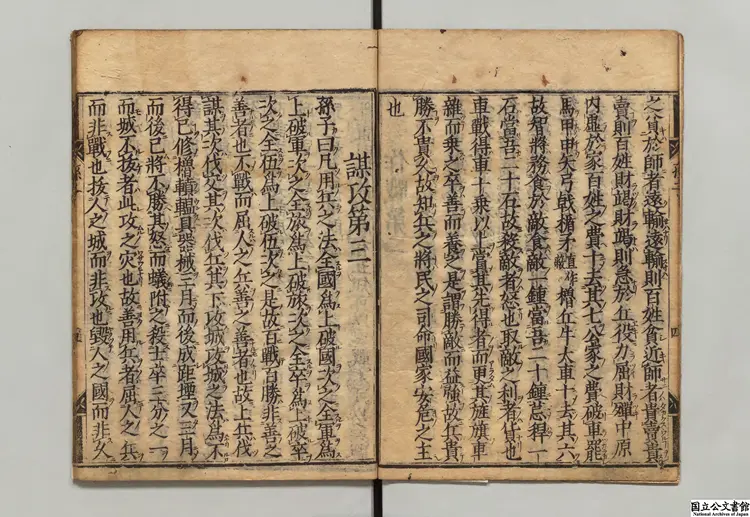 之貧於師者遠輸遠輸則百姓貧近師者貴賣貴
賣則百姓財竭財竭則急於丘役力屈財殫中原
內虛於家百姓之費十去其七公家之費破車罷
馬甲冑矢弓戟楯矛櫓丘牛大車十去其六
故智將務食於敵食敵一鍾當吾二十鍾忌稈一
石當吾二十石故殺敵者怒也取敵之利者貨也
車戰得車十乘以上賞其先得者而更其旌旗車
雜而乘之卒善而養之是謂勝敵而益強故兵貴
勝不貴久故知兵之將民之司命國家安危之主
也
謀攻第三
孫子曰凡用兵之法全國爲上破國次之全軍爲
上破軍次之全旅爲上破旅次之全卒爲上破卒
次之全伍爲上破伍次之是故百戰百勝非善之
善者也不戰而屈人之兵善之善者也故上兵伐
謀其次伐交其次伐兵其下攻城攻城之法爲不
得已修櫓轒轀具器械三月而後成距堙又三月
而後已將不勝其忿而蟻附之殺士卒三分之一
而城不拔者此攻之災也故善用兵者屈人之兵
而非戰也拔人之城而非攻也毀人之國而非久
国立公文書館
National Archives of Japan